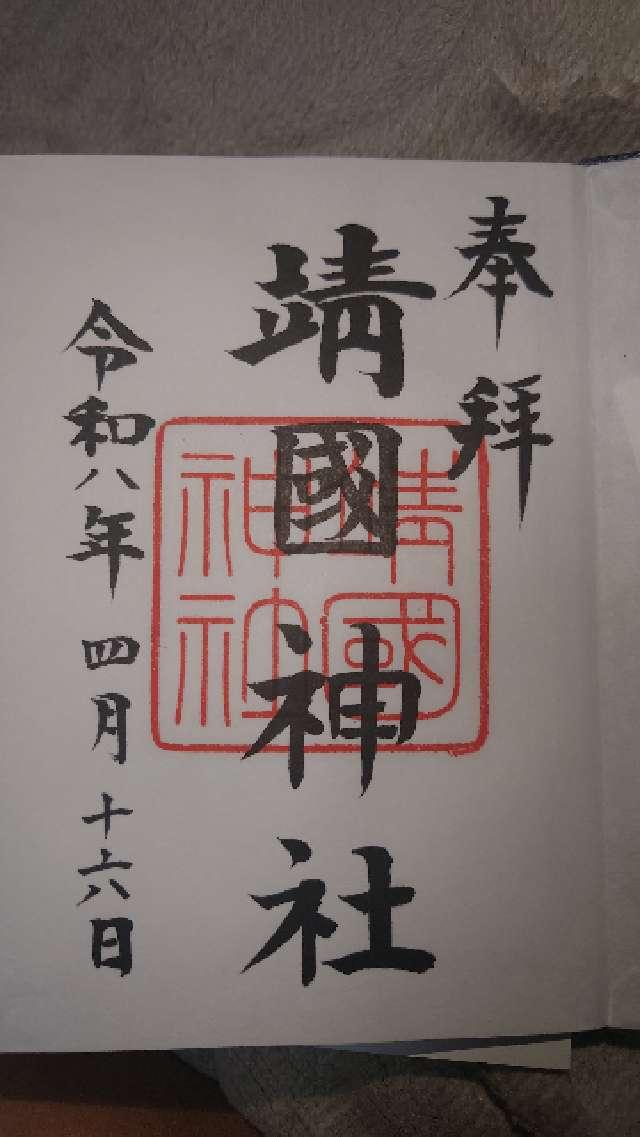 奉拝
靖國神社
靖國
神社
令和八年四月十六日